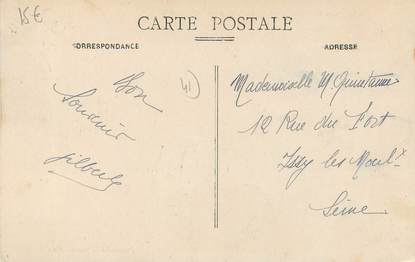 15€
CARTE POSTALE
CORRESPONDANCE
ADRESSE
Bon
Souvenir
Gilbert
41
Mademoiselle M. Quintanne
12 Rue du Fort
Issy les Moulx
Seine